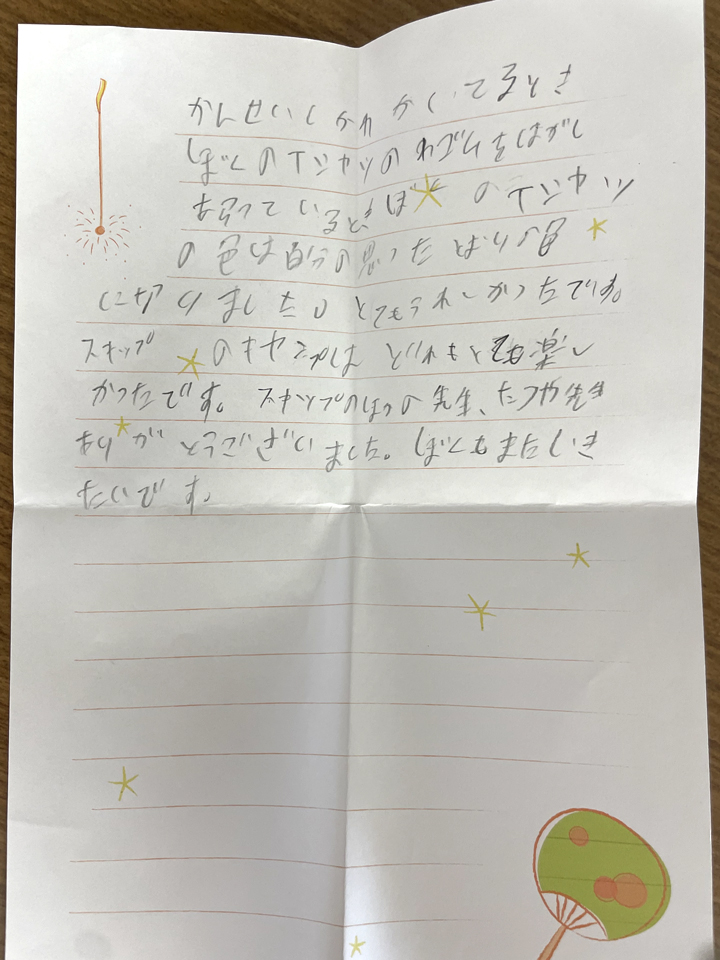 かんせいしかわかしいてるとき
ぼくのTシャツのわゴムをはがし
あらっているときぼくのTシャツ
の色は自分の思ったとおりの色
になりました。とてもうれしかったです。
スキップのキャンプはどれもとても楽し
かったです。スキップのほかの先生、たつや先生
ありがとうございました。ぼくもまたいき
たいです。